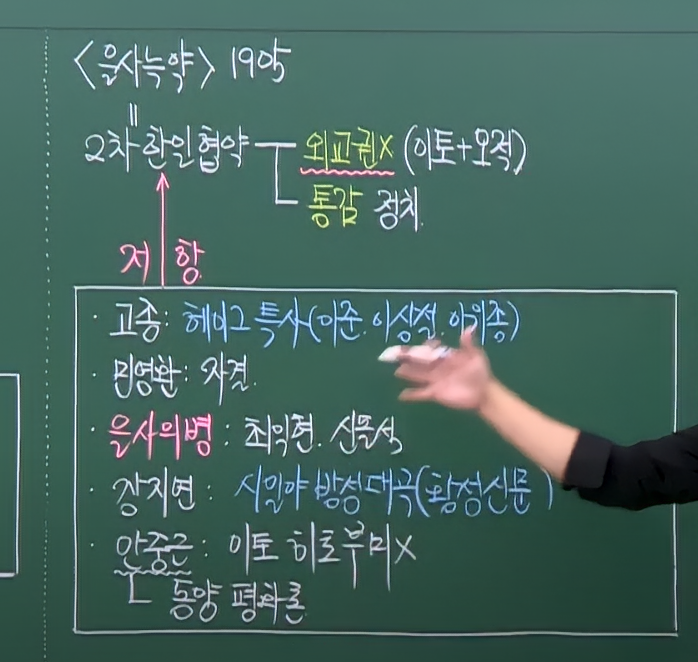 <을사늑약> 1905
||
2차 한일협약
외교권X (이토+오적)
통감 정치.
저항
· 고종: 헤이그 특사(이준. 이상설. 이위종)
· 민영환: 자결.
· 을사의병: 최익현. 신돌석
· 장지연: 시일야 방성대곡(황성신문)
· 안중근: 이토 히로부미X
동양 평화론